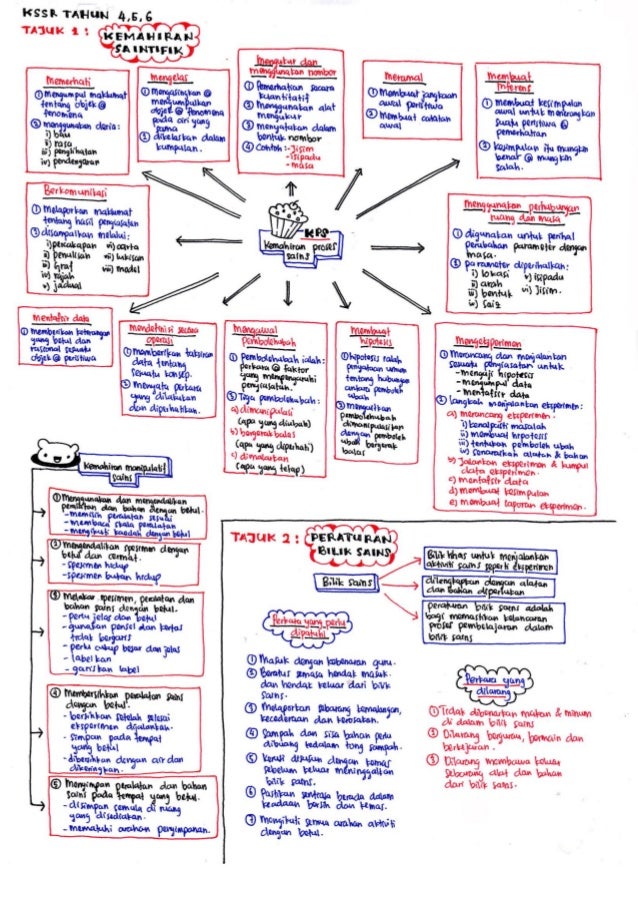 KSSR TAHUN 4,5,6
TAJUK 1 :
KEMAHIRAN
SAINTIFIK
Memerhati
① Mengumpul maklumat
tentang objek @
fenomena
② menggunakan deria:
i) bau
ii) rasa
iii) penglihatan
iv) pendengaran
Mengelas
① Mengasingkan @
mengumpulkan
objek @ fenomena
pada ciri yang
sama
② dikelaskan dalam
kumpulan.
Mengukur dan
menggunakan nombor
① Pemerhatian secara
kuantitatif
② Menggunakan alat
mengukur
③ menyatakan dalam
bentuk nombor
④ Contoh :- Jisim
- isipadu
- masa
Meramal
① Membuat jangkaan
awal peristiwa
② Membuat catatan
awal
Membuat
Inferens
① membuat kesimpulan
awal untuk menerangkan
suatu peristiwa @
pemerhatian
② kesimpulan itu mungkin
benar @ mungkin
salah.
Berkomunikasi
① Melaporkan maklumat
tentang hasil penyiasatan
② disampaikan melalui:
i) percakapan vi) carta
ii) penulisan vii) lukisan
iii) Graf viii) model
iv) rajah
v) jadual
KPS
Kemahiran proses
sains
Menggunakan perhubungan
ruang dan masa
① digunakan untuk perihal
perubahan parameter dengan
masa.
② parameter diperihalkan:
i) lokasi v) isipadu
ii) arah vi) Jisim.
iii) bentuk
iv) saiz
Mentafsir data
① memberikan keterangan
yang betul dan
rasional sesuatu
objek @ peristiwa
Mendefinisi secara
operasi
① Memberikan taksiran
data tentang
sesuatu konsep.
② Menyata perkara
yang dilakukan
dan diperhatikan.
Mengawal
pembolehubah
① pembolehubah ialah:
perkara @ faktor
yang mempengaruhi
penyiasatan.
② Tiga pembolehubah:
a) dimanipulasi
(apa yang diubah)
b) bergerakbalas
(apa yang diperhati)
c) dimalarkan
(apa yang tetap)
Membuat
hipotesis
① hipotesis ialah
penyataan umum
tentang hubungan
antara pemboleh
ubah
② mengaitkan
pembolehubah
dimanipulasikan
dengan pemboleh
ubah bergerak
balas
Mengeksperimen
① Merancang dan menjalankan
sesuatu penyiasatan untuk
- menguji hipotesis
- mengumpul data
- mentafsir data
② langkah menjalankan eksperimen:
a) merancang eksperimen.
i) kenalpasti masalah
ii) membuat hipotesis
iii) tentukan pemboleh ubah
iv) senaraikan alatan & bahan
b) Jalankan eksperimen & kumpul
data eksperimen.
c) mentafsir data
d) membuat kesimpulan
e) membuat laporan eksperimen.
Kemahiran manipulatif
sains
① Menggunakan dan mengendalikan
peralatan dan bahan dengan betul.
- memilih peralatan sesuai
- membaca skala peralatan
- mengikuti kaedah dengan betul
② mengendalikan spesimen dengan
betul dan cermat.
- spesimen hidup
- spesimen bukan hidup
③ Melakar spesimen, peralatan dan
bahan sains dengan betul.
- perlu jelas dan betul
- gunakan pensel dan kertas
tidak bergaris
- perlu cukup besar dan jelas
- labelkan
- gariskan label
④ Membersihkan peralatan sains
dengan betul.
- bersihkan setelah selesai
eksperimen dijalankan.
- simpan pada tempat
yang betul
- dibersihkan dengan air dan
dikeringkan.
⑤ Menyimpan peralatan dan bahan
sains pada tempat yang betul.
- disimpan semula di ruang
yang disediakan.
- mematuhi arahan penyimpanan.
TAJUK 2 :
PERATURAN
BILIK SAINS
Bilik sains
Bilik khas untuk menjalankan
aktiviti sains seperti eksperimen
dilengkapkan dengan alatan
dan bahan diperlukan
peraturan bilik sains adalah
bagi memastikan kelancaran
proses pembelajaran dalam
bilik sains
Perkara yang perlu
dipatuhi
① Masuk dengan kebenaran guru.
② Beratur semasa hendak masuk
dan hendak keluar dari bilik
sains.
③ Melaporkan sebarang kemalangan,
kecederaan dan kerosakan.
④ Sampah dan sisa bahan perlu
dibuang kedalam tong sampah.
⑤ Kerusi disusun dengan kemas
sebelum keluar meninggalkan
bilik sains.
⑥ Pastikan sentiasa berada dalam
keadaan bersih dan kemas.
⑦ Mengikuti semua arahan aktiviti
dengan betul.
Perkara yang
dilarang
① Tidak dibenarkan makan & minum
di dalam bilik sains
② Dilarang bergurau, bermain dan
berkejaran.
③ Dilarang membawa keluar
sebarang alat dan bahan
dari bilik sains.